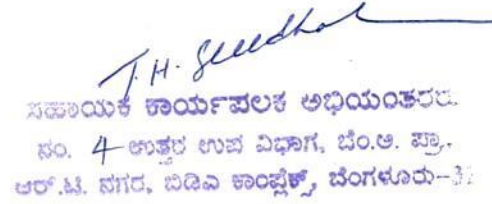 T.H.
ಸಹಾಯಕ ಕಾರ್ಯಪಾಲಕ ಅಭಿಯಂತರರು
ನಂ. 4 ಉತ್ತರ ಉಪ ವಿಭಾಗ, ಬೆಂ.ಅ. ಪ್ರಾ.
ಆರ್.ಟಿ. ನಗರ, ಬಿಡಿಎ ಕಾಂಪ್ಲೆಕ್ಸ್, ಬೆಂಗಳೂರು-32